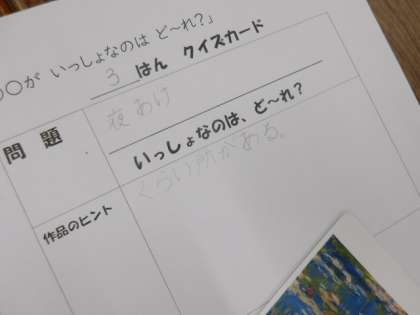 〇が いっしょなのは ど〜れ？」
3 はん クイズカード
問題
夜あけ
いっしょなのは、ど〜れ？
作品のヒント
くらい所がある。